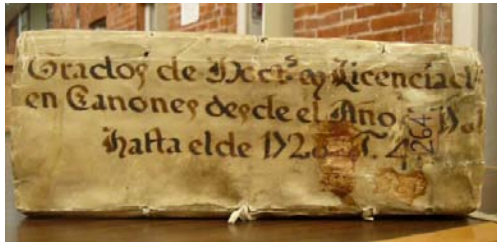 Grados de Doct.s en Licenciad
en Canones desde el Año
hasta el de 1720 T. 4
264